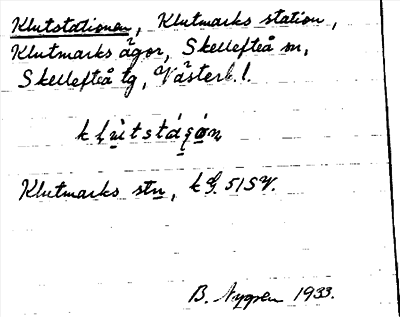 Klutstationen, Klutmarks station,
Klutmarks ägor, Skellefteå sn,
Skellefteå tg, Västerb. l.
Klutmarks stn, k bl. 51 SV.
B. Nygren 1933.